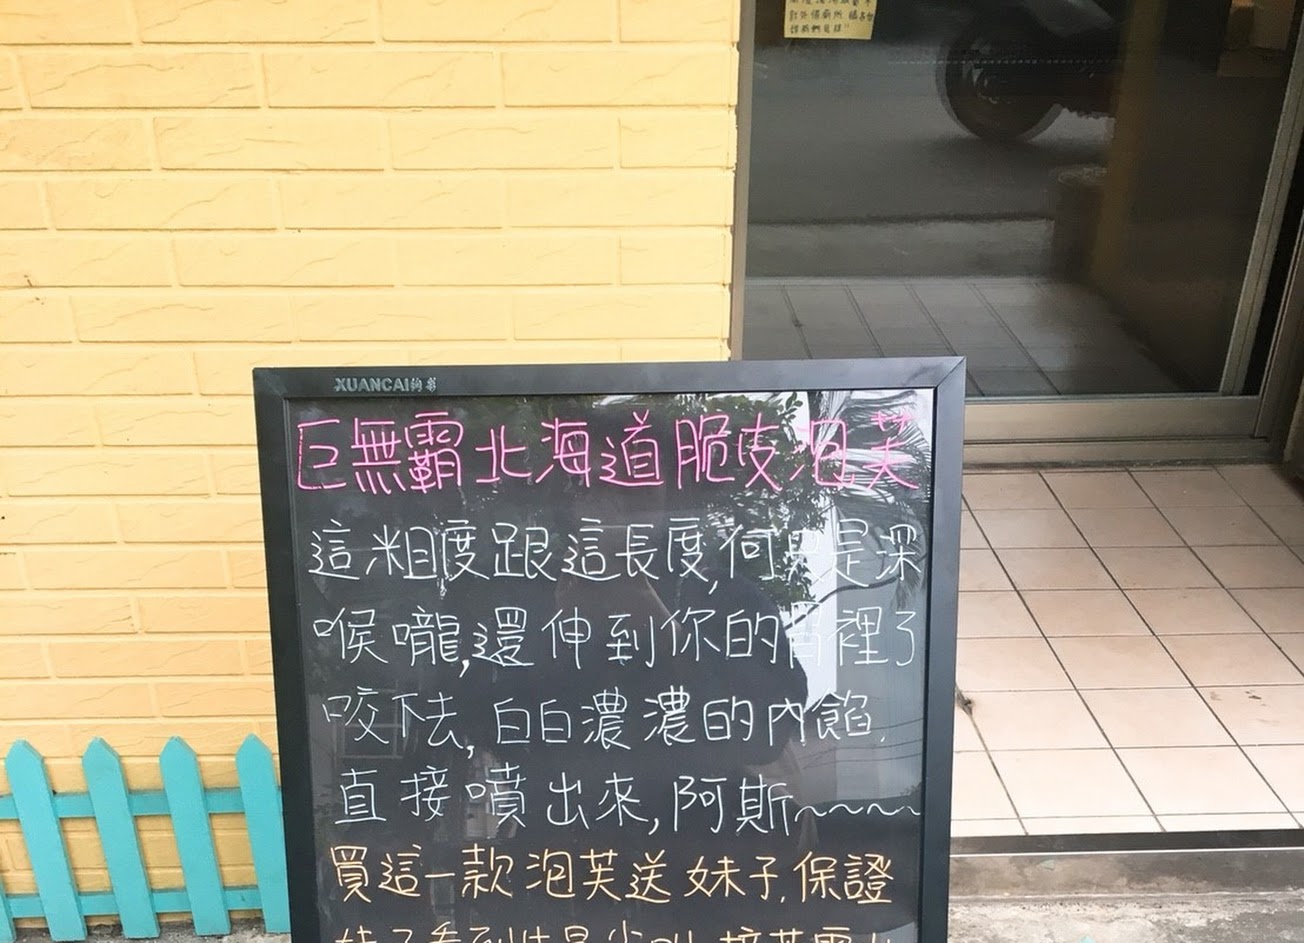 對外借廁所
XUANCAI絢彩
巨無霸北海道脆皮泡芙
這粗度跟這長度,何只是深
喉嚨,還伸到你的胃裡了
咬下去,白白濃濃的內餡.
直接噴出來,阿斯~~~~
買這一款泡芙送妹子,保證